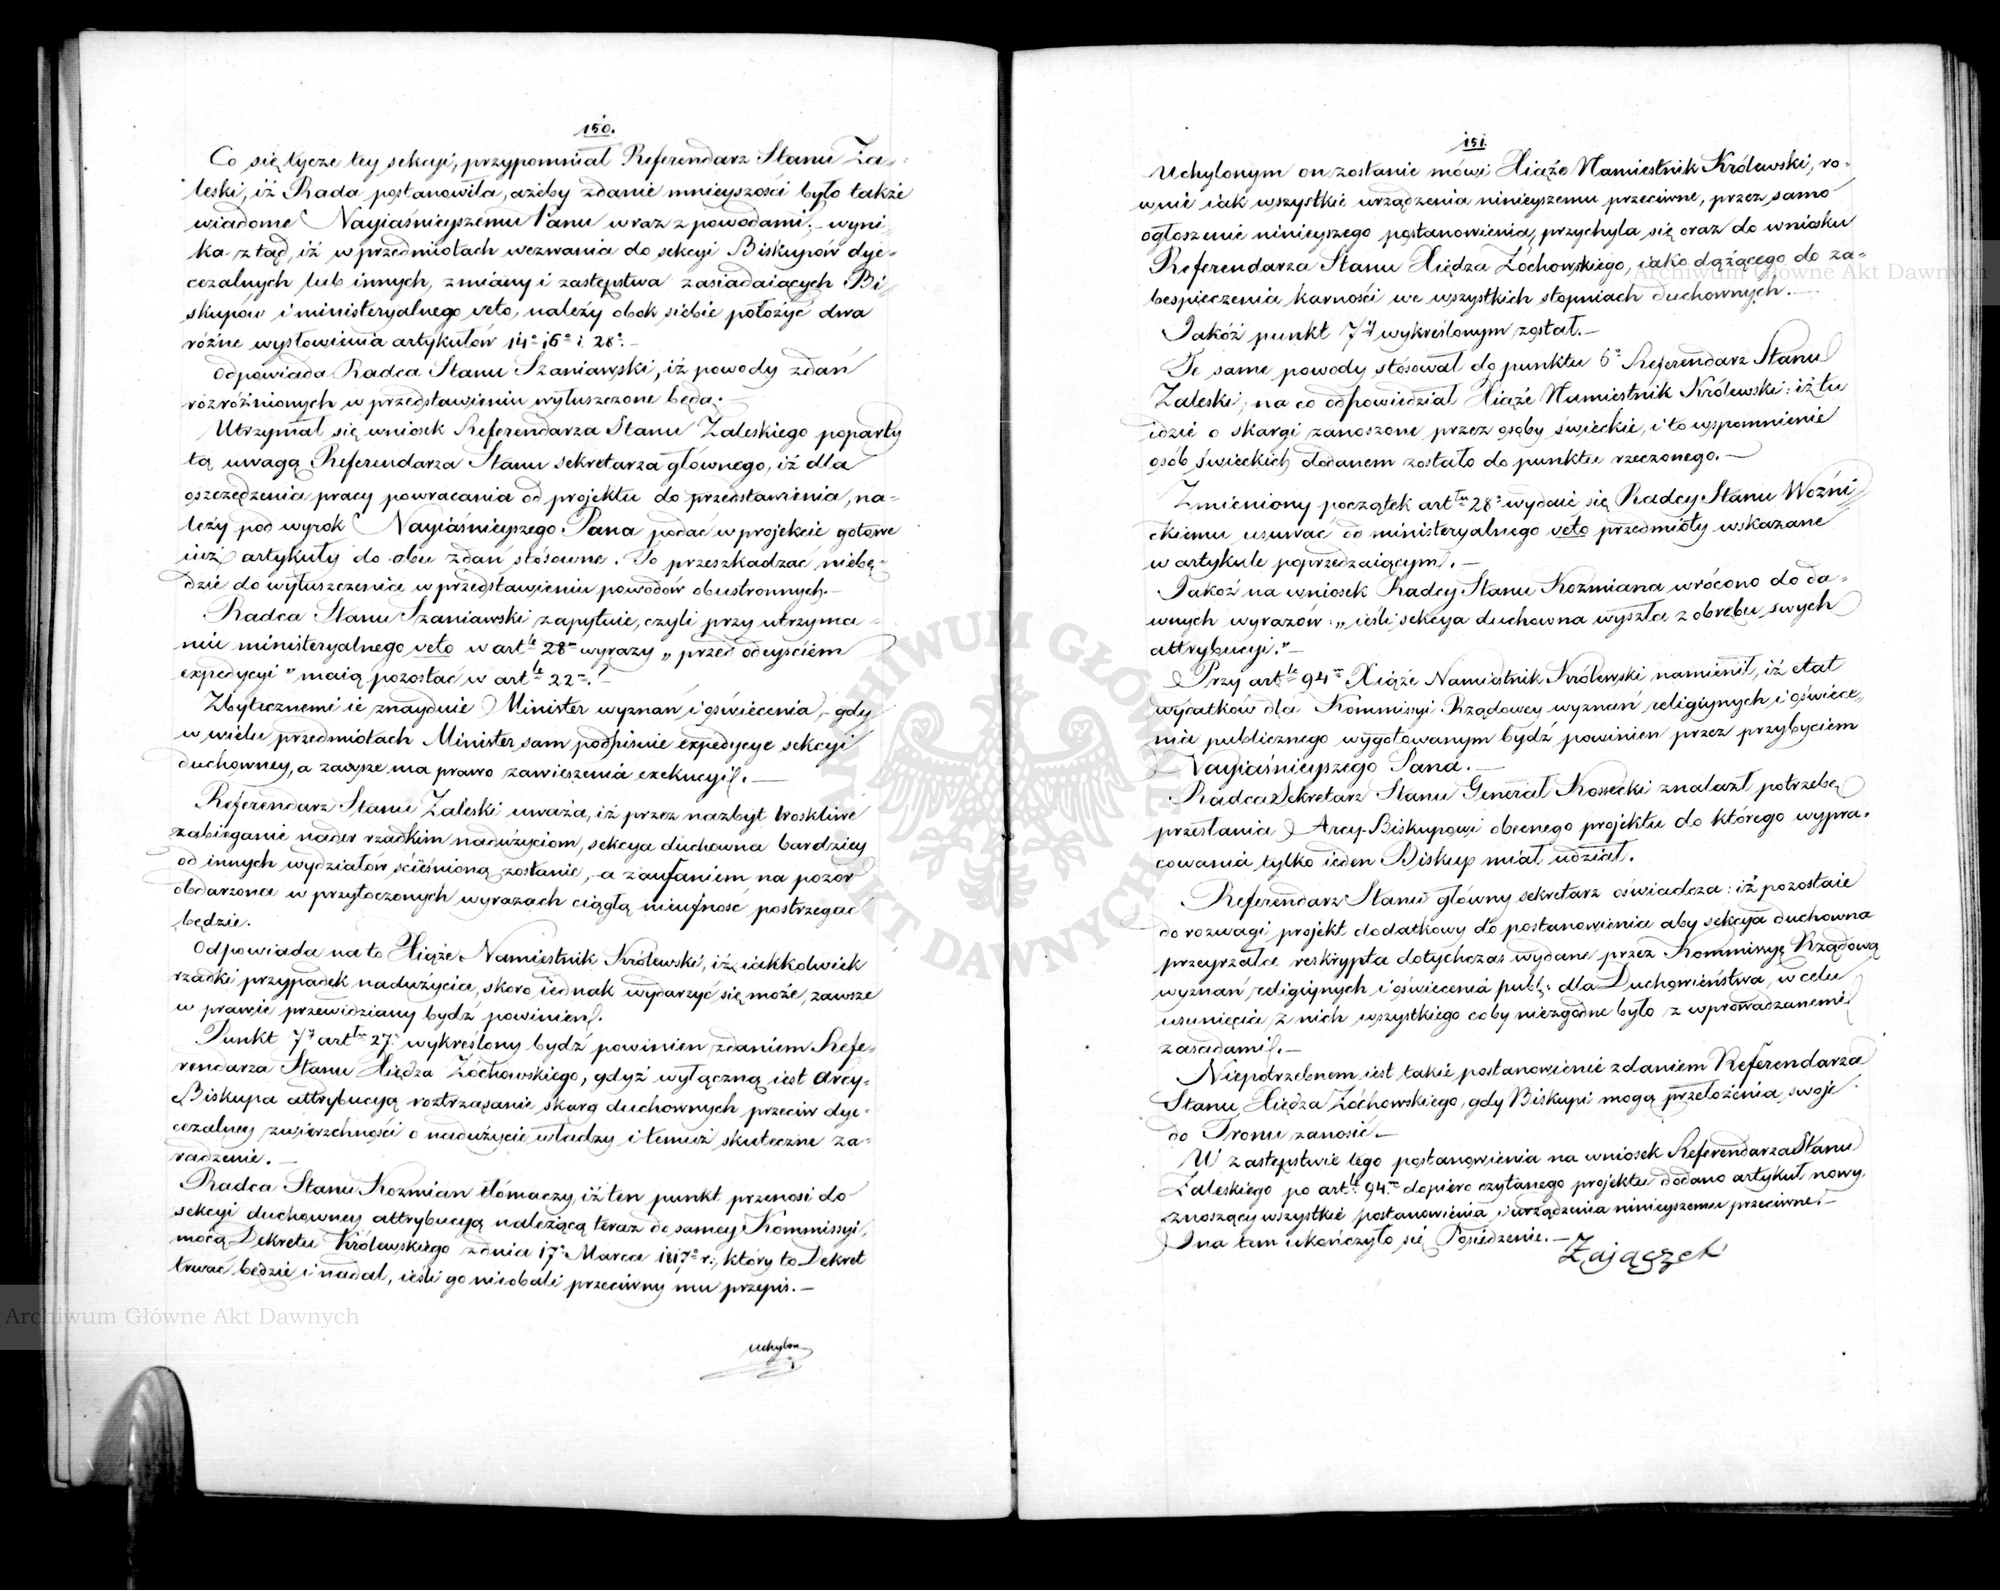 150.
Co się tycze tey sekcyi, przypomniał Referendarz Stanu Za-
leski, iż Rada postanowiła, ażeby zdanie mnieyszości było także
wiadome Nayiaśnieyszemu Panu wraz z powodami; wyni-
ka ztąd, iż w przedmiotach wezwania do sekcyi Biskupów dye-
cezalnych lub innych, zmiany i zastępstwa zasiadaiących Bi-
skupów i ministeryalnego veto, należy obok siebie położyć dwa
różne wysłowienia artykułów 14° 16° i 28°.
Odpowiada Radca Stanu Szaniawski, iż powody zdań
rozróżnionych w przedstawieniu wyłuszczone będą.—
Utrzymał się wniosek Referendarza Stanu Zaleskiego poparty
tą uwagą Referendarza Stanu sekretarza głównego, iż dla
oszczędzenia pracy powracania od projektu do przedstawienia, na-
leży pod wyrok Nayiaśnieyszego Pana podać w projekcie gotowe
iuż artykuły do obu zdań stósowne. To przeszkadzać niebę-
dzie do wyłuszczenia w przedstawieniu powodów obustronnych.—
Radca Stanu Szaniawski zapytuie, czyli przy utrzyma-
niu ministeryalnego veto w art.le 28m wyrazy „przed odeyściem
expedycyi" maią pozostać w art.le 22m?—
Zbytecznemi ie znayduie Minister wyznań i oświecenia,- gdy
w wielu przedmiotach Minister sam podpisuie expedycye sekcyi
duchowney, a zawsze ma prawo zawieszenia exekucyi.—
Referendarz Stanu Zaleski uważa, iż przez nazbyt troskliwe
zabieganie nader rzadkim nadużyciom, sekcya duchowna bardziey
od innych wydziałów ścieśnioną zostanie, a zaufaniem na pozór
obdarzona w przytoczonych wyrazach ciągłą nieufność postrzegać
będzie.
Odpowiada na to Xiąże Namiestnik Królewski, iż iakkolwiek
rzadki przypadek nadużycia, skoro iednak wydarzyć się może, zawsze
w prawie przewidziany bydź powinien.
Punkt 7y art.tu 27. wykreślony bydź powinien zdaniem Refe-
rendarza Stanu Xiędza Żóchowskiego, gdyż wyłączną iest Arcy-
Biskupa attrybucyą roztrząsanie skarg duchownych przeciw dye-
cezalney zwierzchności o nadużycie władzy i temuż skuteczne za-
radzenie.—
Radca Stanu Kozmian tłómaczy, iż ten punkt przenosi do
sekcyi duchowney attrybucyą należącą teraz do samey Kommissyi,
mocą Dekretu Królewskiego z dnia 17° Marca 1817° r., który to Dekret
trwać będzie i nadal, ieśli go nieobali przeciwny mu przepis.—
Uchylon
151.
Uchylonym on zostanie mówi Xiąże Namiestnik Królewski, ro-
wnie iak wszystkie urządzenia ninieyszemu przeciwne, przez samo
ogłoszenie ninieyszego postanowienia, przychyla się oraz do wniosku
Referendarza Stanu Xiędza Żochowskiego, iako dążącego do za-
bespieczenia karności we wszystkich stopniach duchownych.—
Jakóż punkt 7y wykreślonym został.—
Te same powody stósował do punktu 6° Referendarz Stanu
Zaleski, na co odpowiedział Xiąże Namiestnik Królewski: iż tu
idzie o skargi zanoszone przez osoby świeckie, i to wspomnienie
osób świeckich dodanem zostało do punktu rzeczonego.—
Zmieniony początek art.tu 28° wydaie się Radcy Stanu Woźni-
ckiemu usuwać od ministeryalnego veto przedmioty wskazane
w artykule poprzedzaiącym.—
Jakoż na wniosek Radcy Stanu Kozmiana wrócono do da-
wnych wyrazów: „ieśli sekcya duchowna wyszła z obrębu swych
attrybucyi."—
Przy art.le 94m Xiąże Namiestnik Królewski namienił, iż etat
wydatków dla Kommissyi Rządowey wyznań religiynych i oświece-
nia publicznego wygotowanym bydź powinien przez przybyciem
Nayiaśnieyszego Pana.—
Radca Sekretarz Stanu Generał Kossecki znalazł potrzebę
przesłania Arcy-Biskupowi obecnego projektu do którego wypra-
cowania tylko ieden Biskup miał udział.
Referendarz Stanu główny sekretarz oświadcza: iż pozostaie
do rozwagi projekt dodatkowy do postanowienia aby sekcya duchowna
przeyrzała reskrypta dotychczas wydane przez Kommissyę Rządową
wyznań religiynych i oświecenia publ: dla Duchowieństwa, w celu
usunięcia z nich wszystkiego coby niezgodne było z wprowadzanemi
zasadami.—
Niepotrzebnem iest takie postanowienie zdaniem Referendarza
Stanu Xiędza Żóchowskiego, gdy Biskupi mogą przełożenia swoje
do Tronu zanosić.—
W zastępstwie tego postanowienia na wniosek Referendarza Stanu
Zaleskiego po art.le 94.m dopiero czytanego projektu dodano artykuł nowy
znoszący wszystkie postanowienia i urządzenia ninieyszemu przeciwne.—
I na tem ukończyło się Posiedzenie.—
Zajączek
Archiwum Główne Akt Dawnych
Archiwum Główne Akt Dawnych
ARCHIWUM GŁÓWNE AKT DAWNYCH